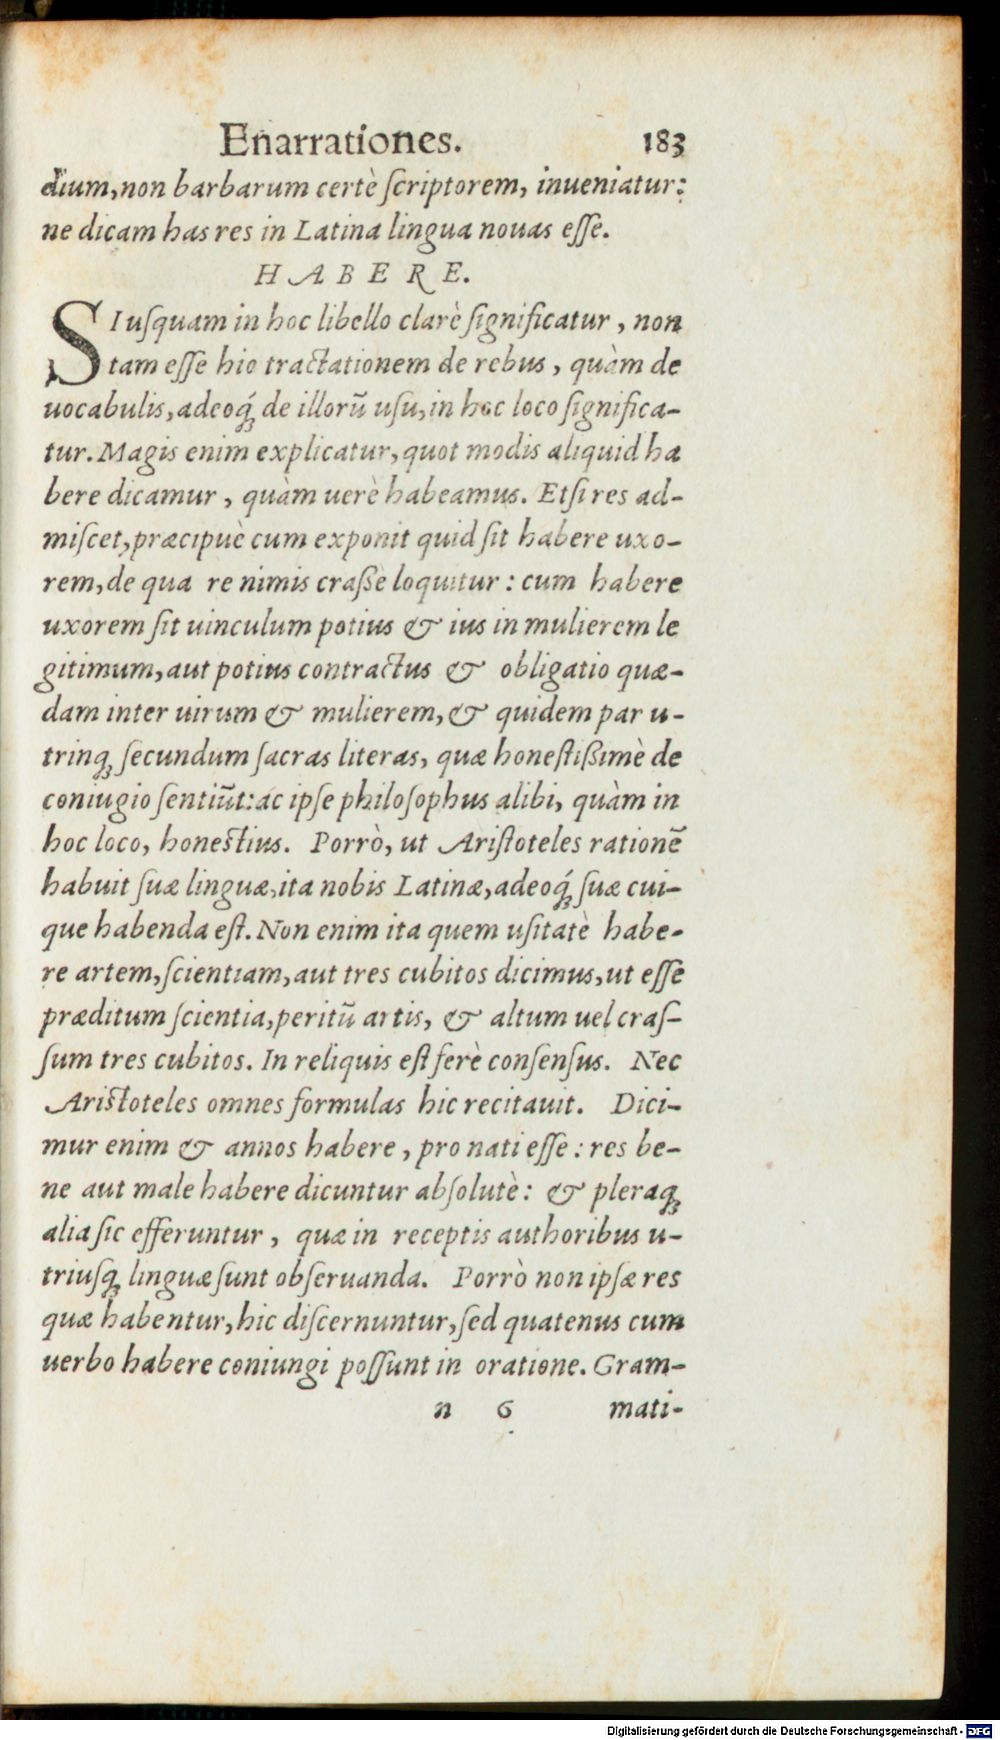 Enarrationes. 183
dium, non barbarum certè ſcriptorem, inueniatur:
ne dicam has res in Latina lingua nouas eſſe.
HABERE.
SI uſquam in hoc libello clarè ſignificatur, non
tam eſſe hic tractationem de rebus, quàm de
uocabulis, adeoq́ꝫ de illorũ uſu, in hoc loco ſignifica-
tur. Magis enim explicatur, quot modis aliquid ha
bere dicamur, quàm uerè habeamus. Etſi res ad-
miſcet, præcipuè cum exponit quid ſit habere uxo-
rem, de qua re nimis craſſe loquitur: cum habere
uxorem ſit uinculum potius & ius in mulierem le
gitimum, aut potius contractus & obligatio quæ-
dam inter uirum & mulierem, & quidem par u-
trinqꝫ ſecundum ſacras literas, quæ honeſtißimè de
coniugio ſentiũt: ac ipſe philoſophus alibi, quàm in
hoc loco, honeſtius. Porrò, ut Ariſtoteles rationẽ
habuit ſuæ linguæ, ita nobis Latinæ, adeoq́ꝫ ſuæ cui-
que habenda eſt. Non enim ita quem uſitatè habe-
re artem, ſcientiam, aut tres cubitos dicimus, ut eſſe
præditum ſcientia, peritũ artis, & altum uel craſ-
ſum tres cubitos. In reliquis eſt ferè conſenſus. Nec
Ariſtoteles omnes formulas hic recitauit. Dici-
mur enim & annos habere, pro nati eſſe: res be-
ne aut male habere dicuntur abſolutè: & pleraqꝫ
alia ſic efferuntur, quæ in receptis authoribus u-
triuſqꝫ linguæ ſunt obſeruanda. Porrò non ipſæ res
quæ habentur, hic diſcernuntur, ſed quatenus cum
uerbo habere coniungi poſſunt in oratione. Gram-
n 6 mati-
Digitalisierung gefördert durch die Deutsche Forschungsgemeinschaft - DFG